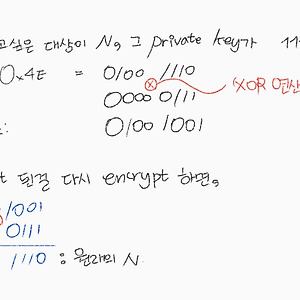 고싶은 대상이 N, 그 private key가
0x4E = 0100 1110
0000 0111 XOR 연산
0100 1001
된걸 다시 encrypt 하면,
1001
0111
1110 : 원래의 N